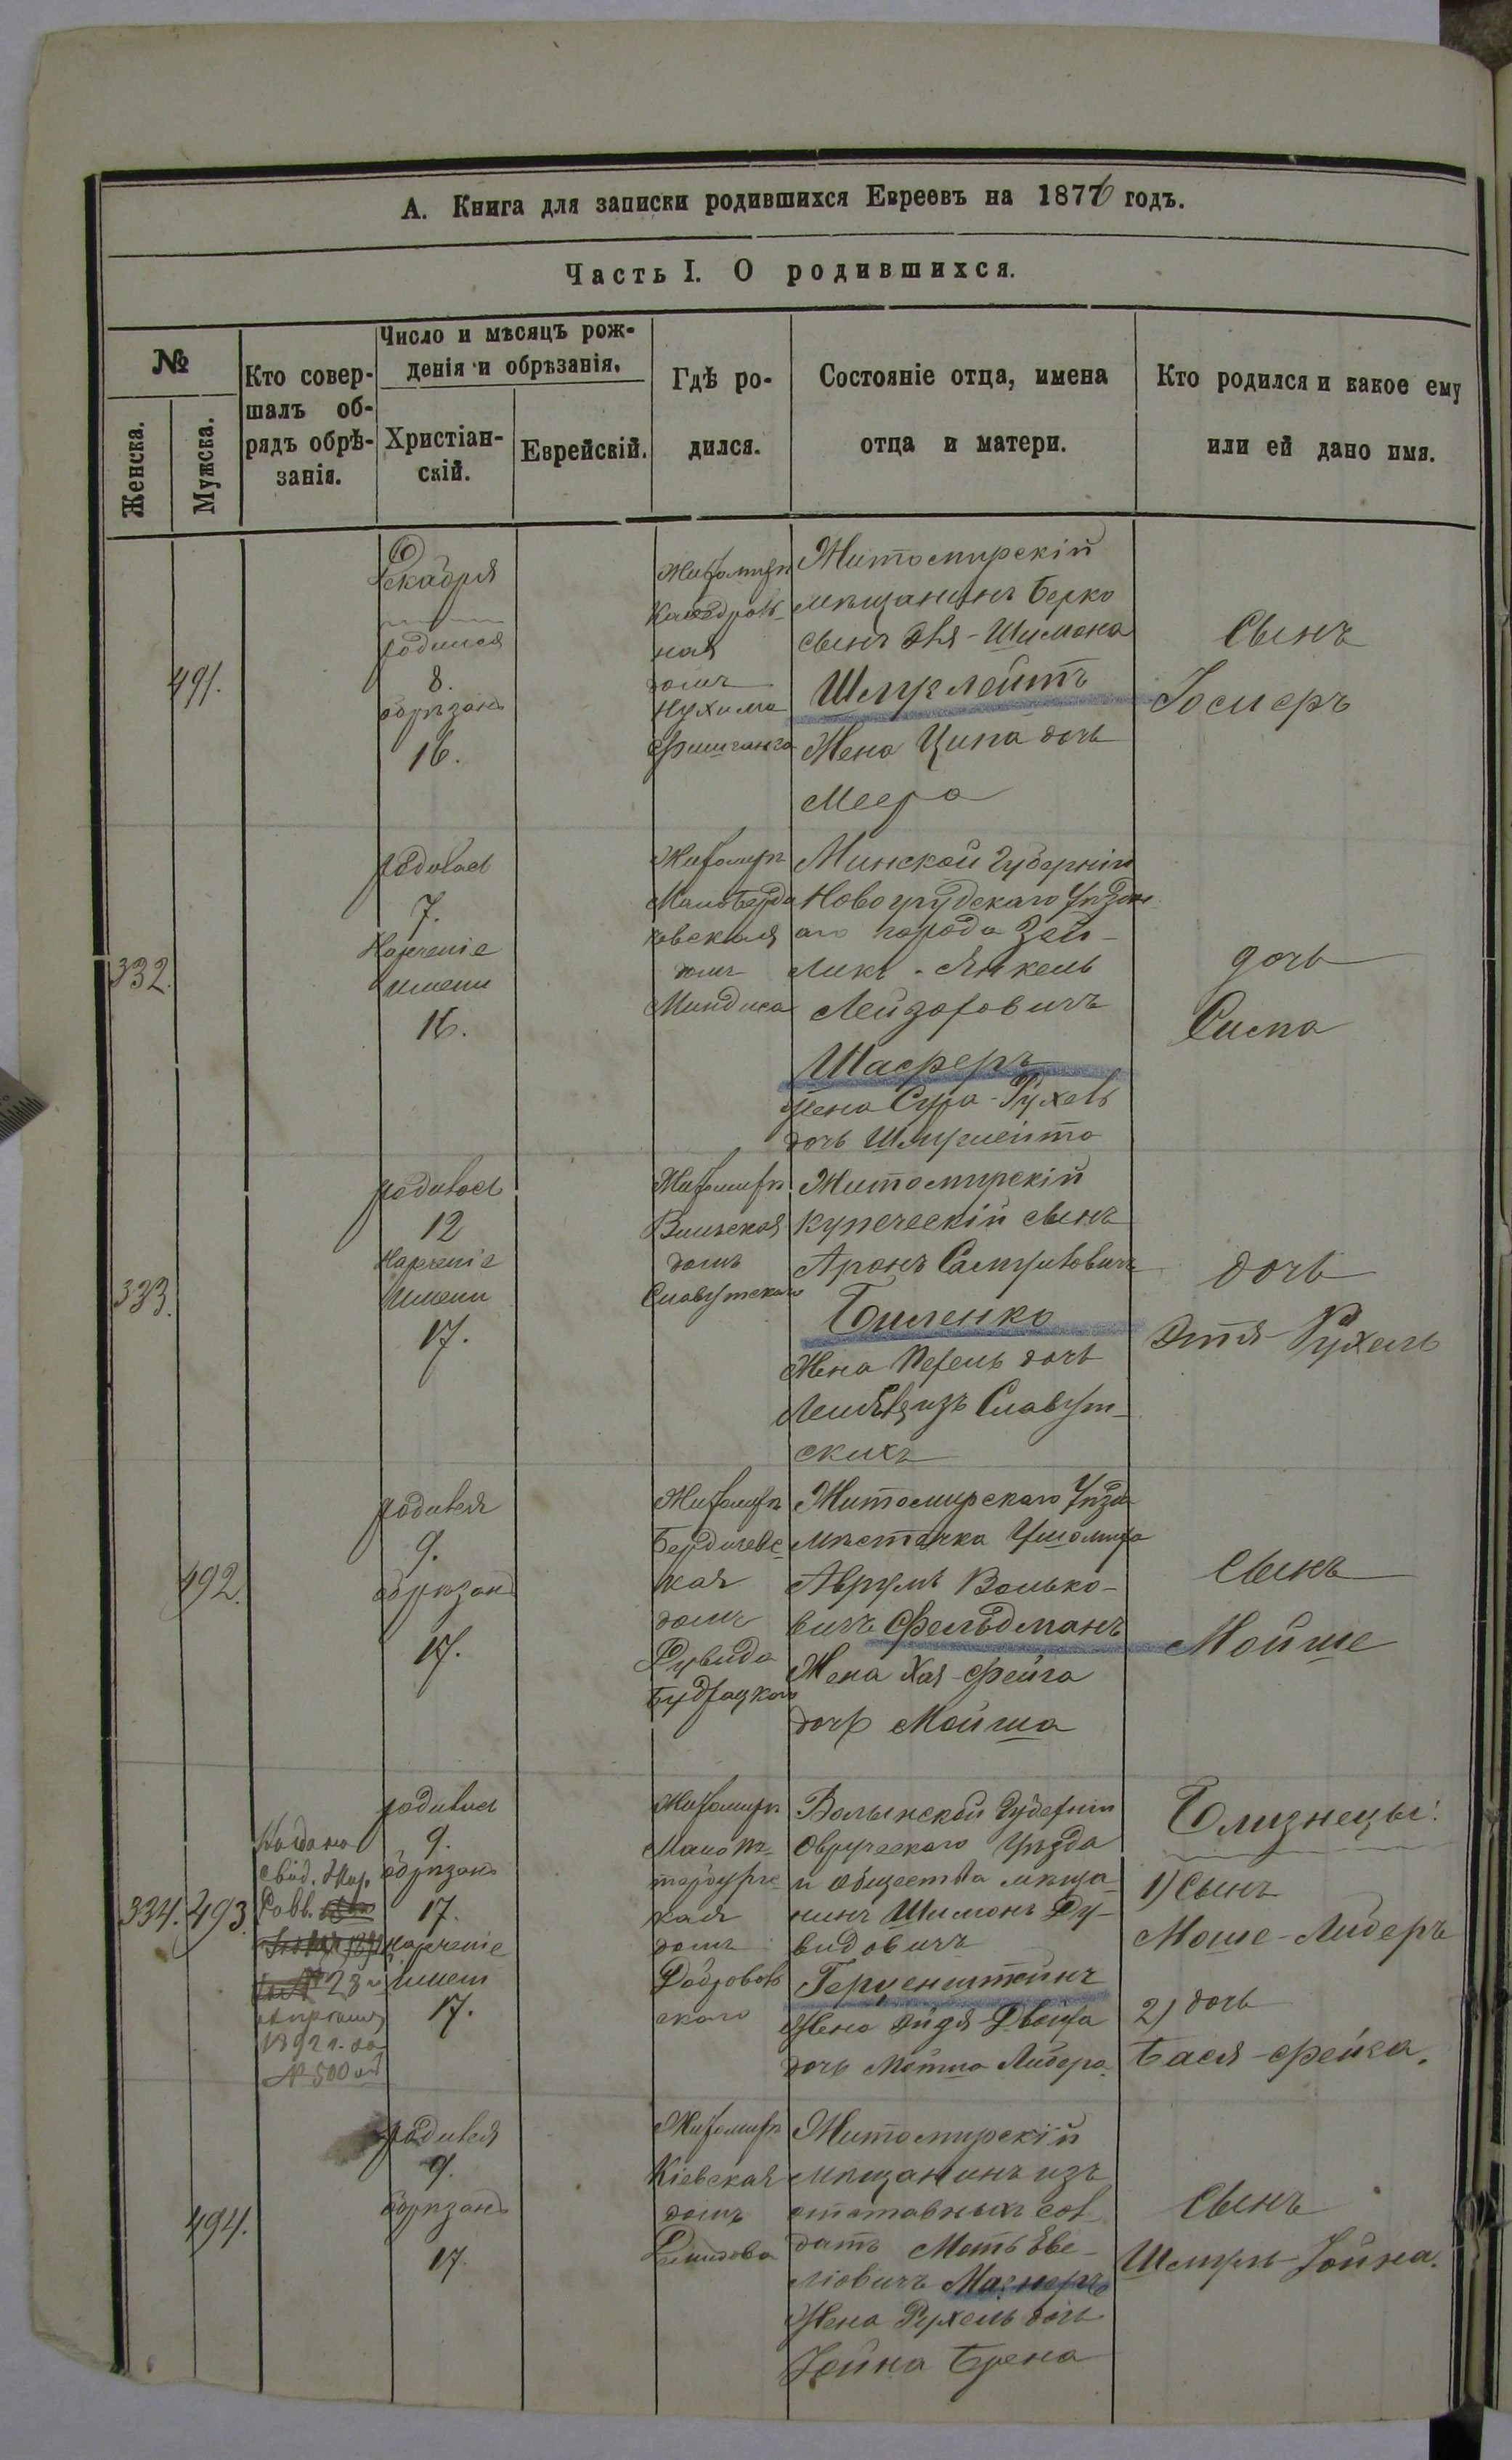 А. Книга для записки родившихся Евреевъ на 1876 годъ.
Часть I. О родившихся.
№
Женска.
Мужска.
Кто совер-
шалъ об-
рядъ обрѣ-
занія.
Число и мѣсяцъ рож-
денія и обрѣзанія.
Христіан-
скій.
Еврейскій.
Гдѣ ро-
дился.
Состояніе отца, имена
отца и матери.
Кто родился и какое ему
или ей дано имя.
491.
Декабря
родился
8.
обрѣзанъ
16.
Житомиръ
Кафедраль-
ная
домъ
Нухима
Житомирскій
мѣщанинъ Берко
сынъ Эля-Шимона
Шмуклейтъ
Жена Ципа дочь
Меера
Сынъ
Госиеръ
332.
родилась
7.
Наречение
имени
16.
Житомиръ
Мало Берди
чевская
домъ
Миндиса
Минской Губерніи
Новогрудскаго Уѣздн
аго города Зей-
ликъ-Янкель
Лейзоровичъ
Шаферъ
Жена Сура-Рухель
дочь
дочь
Сима
333.
родилась
12
Наречение
Имени
17.
Житомиръ
Вильская
домъ
Славутскаго
Житомирскій
купеческій сынъ
Аронъ Самуиловичъ
Биленко
Жена Перель дочь
Лейбы изъ Славут-
скихъ
дочь
Этя-Рухель
492.
родился
9.
обрѣзанъ
17.
Житомиръ
Бердичевс-
кая
домъ
Рувида
Житомирскаго Уѣзда
мѣстечка Ушомира
Аврумъ Волько-
вичъ Фельдманъ
Жена Хая-Фейга
дочь Мойша
сынъ
Мойше
334. 493.
Выдано
свид. Жит.
Равв.
28
апреля
1892 г. за
№ 500
родились
9.
обрѣзанъ
17.
наречение
имени
17.
Житомиръ
Мало Пе-
тербургс-
кая
домъ
Добровол
скаго
Волынской Губерніи
Овручскаго Уѣзда
и общества мѣща-
нинъ Шимонъ Ду-
видовичъ
Герценштейнъ
Жена Эйдя-Двойра
дочь Мотна Лидера
Близнецы:
1) Сынъ
Моше-Лидеръ
2) дочь
Бася-Фейга.
494.
родился
9.
обрѣзанъ
17.
Житомиръ
Кіевская
домъ
Житомирскій
мѣщанинъ изъ
отставныхъ сол
датъ Моть Еве-
ліовичъ
Жена Рухель дочь
Іойна Брена
Сынъ
Шмуль-Іойна.